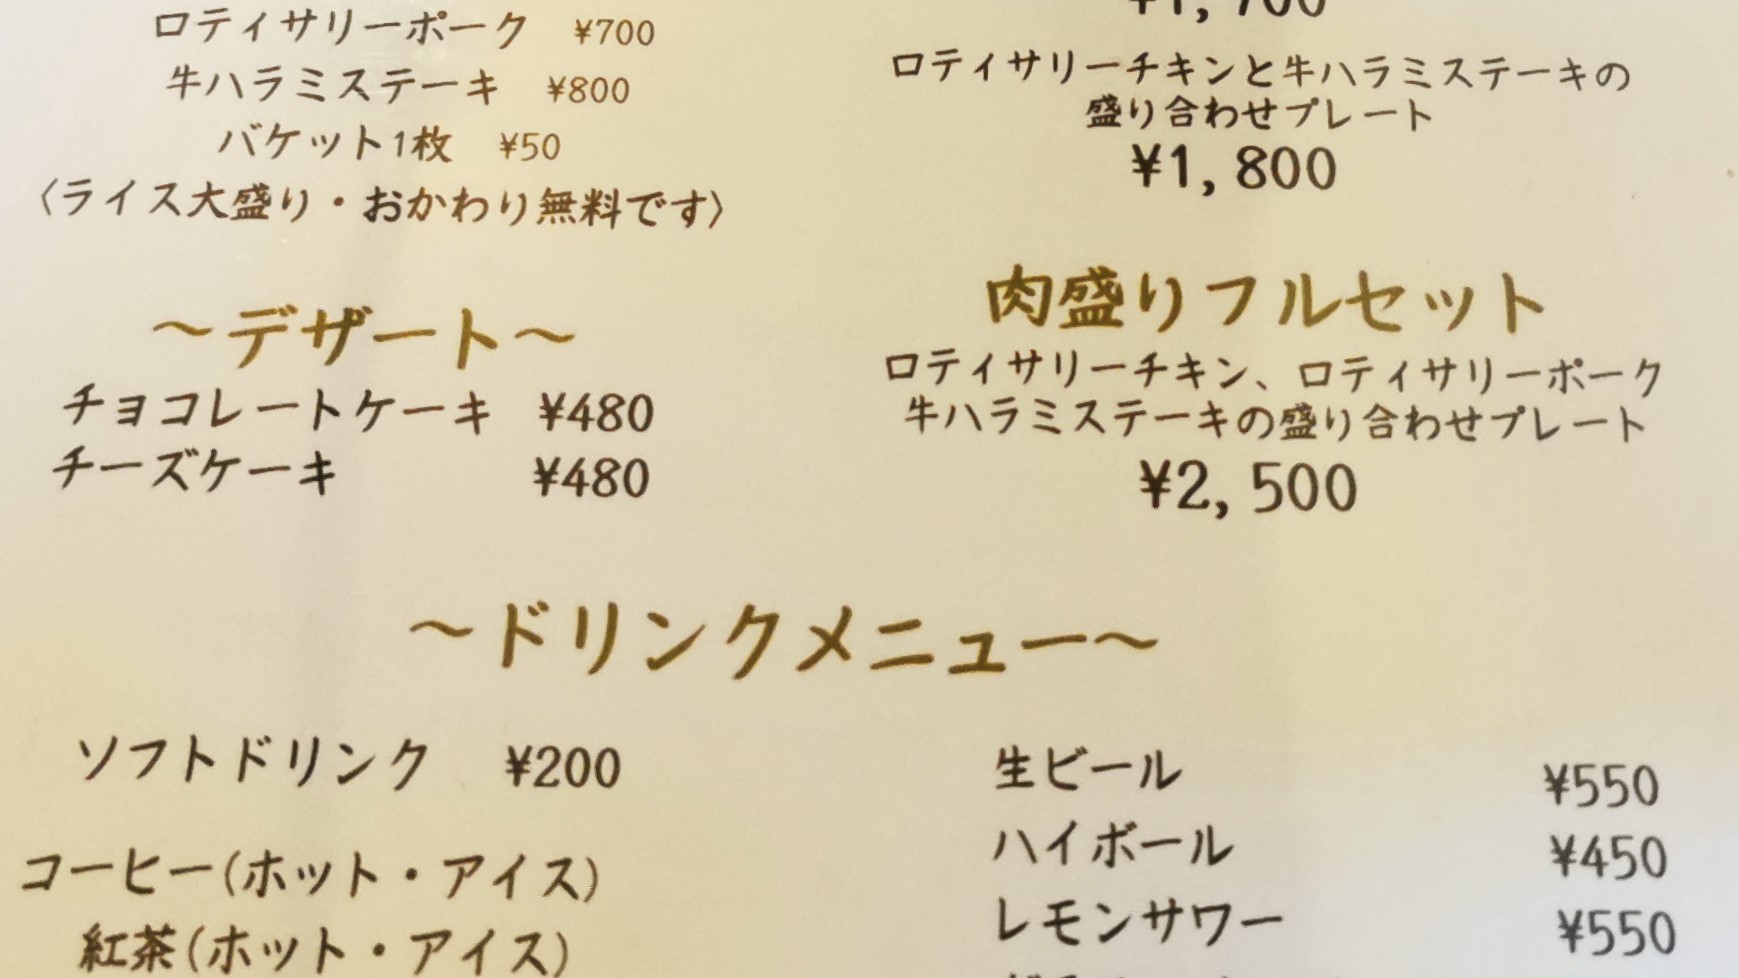 ロティサリーポーク ¥700
牛ハラミステーキ ¥800
バケット1枚 ¥50
〈ライス大盛り・おかわり無料です〉
~デザート~
チョコレートケーキ ¥480
チーズケーキ ¥480
¥1,700
ロティサリーチキンと牛ハラミステーキの
盛り合わせプレート
¥1,800
肉盛りフルセット
ロティサリーチキン、ロティサリーポーク
牛ハラミステーキの盛り合わせプレート
¥2,500
~ドリンクメニュー~
ソフトドリンク ¥200
コーヒー(ホット・アイス)
紅茶(ホット・アイス)
生ビール ¥550
ハイボール ¥450
レモンサワー ¥550